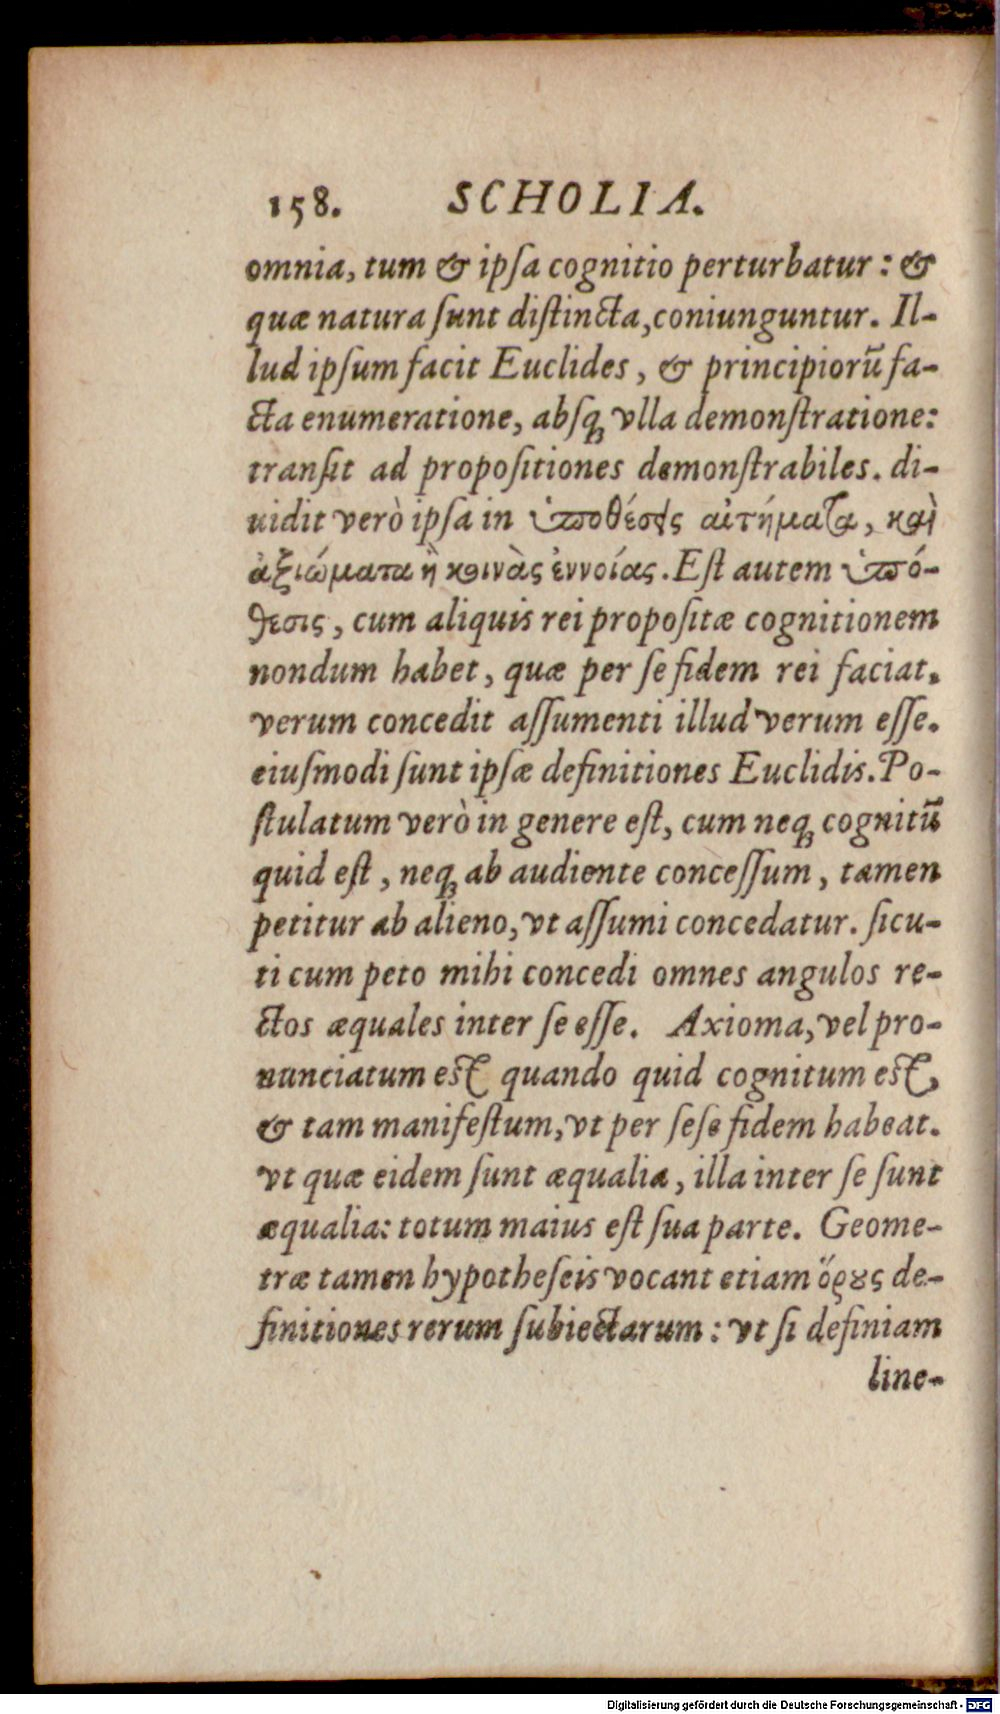 158. SCHOLIA.
omnia, tum & ipſa cognitio perturbatur: &
quæ natura ſunt diſtincta, coniunguntur. Il-
lud ipſum facit Euclides, & principiorũ fa-
cta enumeratione, abſq; vlla demonſtratione:
tranſit ad propoſitiones demonſtrabiles. di-
uidit verò ipſa in ὑποθέσεις αἰτήματα, καὶ
ἀξιώματα ἢ κοινὰς ἐννοίας. Eſt autem ὑπό-
θεσις, cum aliquis rei propoſitæ cognitionem
nondum habet, quæ per ſe fidem rei faciat.
verum concedit aſſumenti illud verum eſſe.
eiuſmodi ſunt ipſæ definitiones Euclidis. Po-
ſtulatum verò in genere eſt, cum neq; cognitũ
quid eſt, neq; ab audiente conceſſum, tamen
petitur ab alieno, vt aſſumi concedatur. ſicu-
ti cum peto mihi concedi omnes angulos re-
ctos æquales inter ſe eſſe. Axioma, vel pro-
nunciatum est quando quid cognitum est,
& tam manifeſtum, vt per ſeſe fidem habeat.
vt quæ eidem ſunt æqualia, illa inter ſe ſunt
æqualia: totum maius eſt ſua parte. Geome-
træ tamen hypotheſeis vocant etiam ὅρους de-
finitiones rerum ſubiectarum: vt ſi definiam
line-
Digitalisierung gefördert durch die Deutsche Forschungsgemeinschaft - DFG